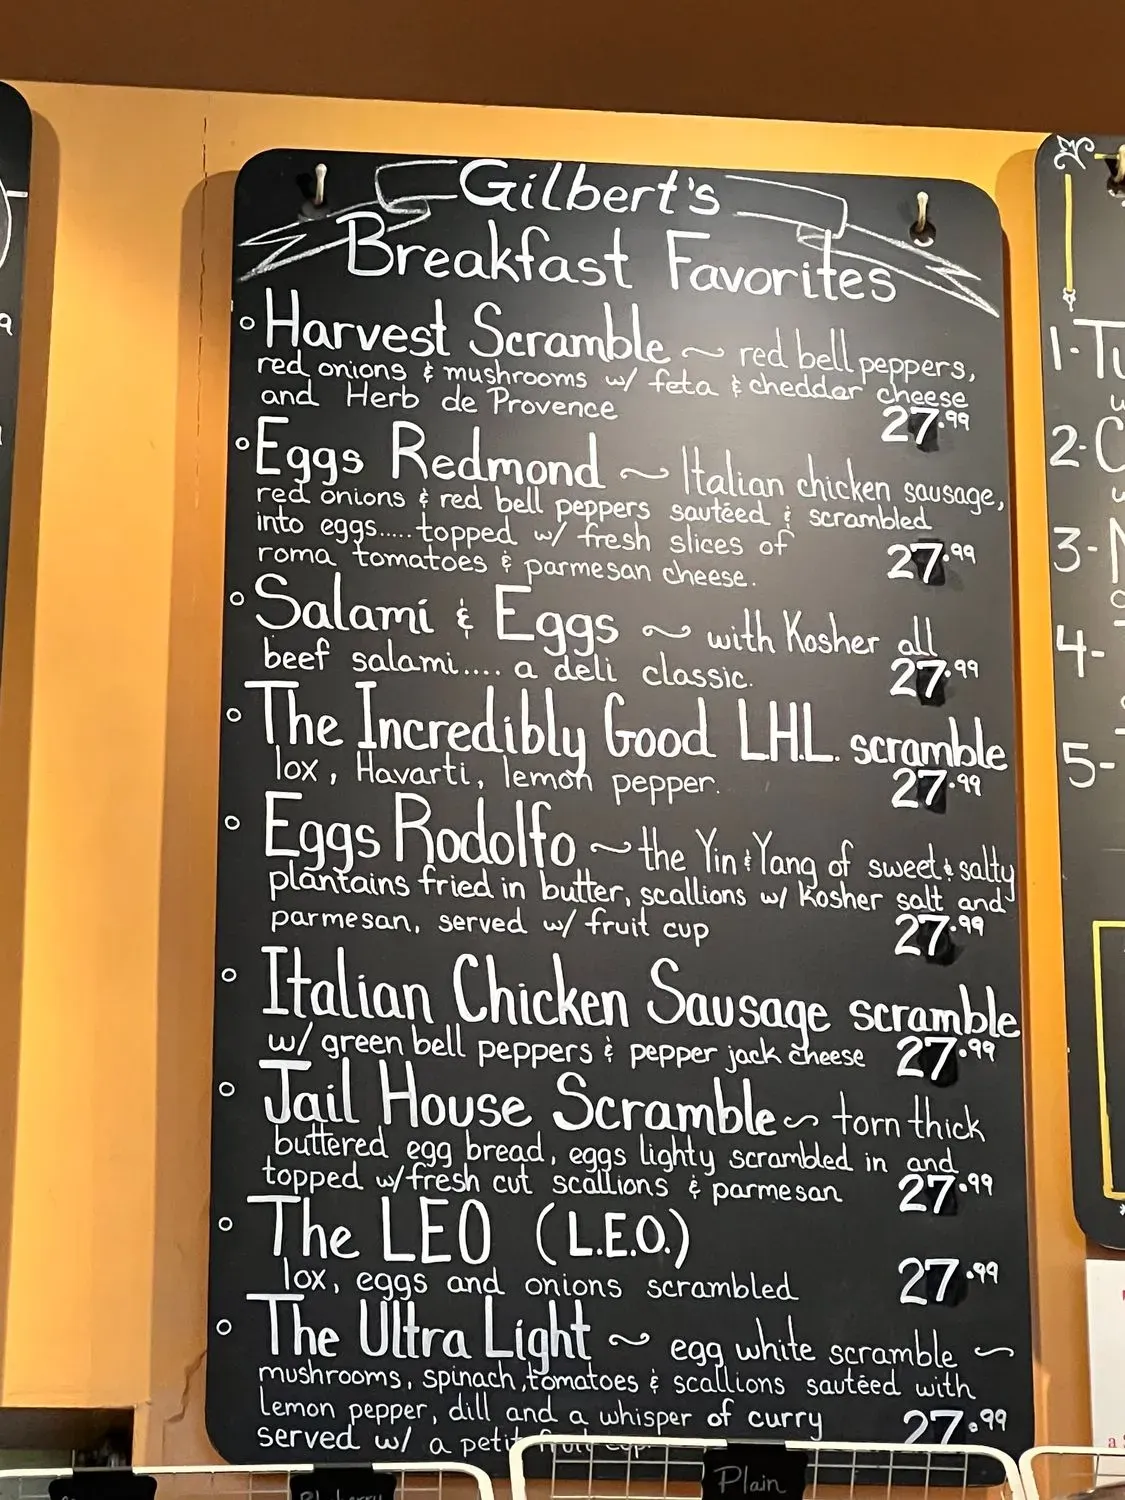 Gilbert's
Breakfast Favorites
Harvest Scramble ~ red bell peppers,
red onions & mushrooms w/ feta & cheddar cheese
and Herb de Provence 27.99
Eggs Redmond ~ Italian chicken sausage,
red onions & red bell peppers sautéed & scrambled
into eggs..... topped w/ fresh slices of
roma tomatoes & parmesan cheese. 27.99
Salami & Eggs ~ with Kosher all
beef salami.... a deli classic. 27.99
The Incredibly Good L.H.L. scramble
lox, Havarti, lemon pepper. 27.99
Eggs Rodolfo ~ the Yin & Yang of sweet & salty
plantains fried in butter, scallions w/ Kosher salt and
parmesan, served w/ fruit cup 27.99
Italian Chicken Sausage scramble
w/ green bell peppers & pepper jack cheese 27.99
Jail House Scramble ~ torn thick
buttered egg bread, eggs lighty scrambled in and
topped w/ fresh cut scallions & parmesan 27.99
The LEO (L.E.O.)
lox, eggs and onions scrambled 27.99
The Ultra Light ~ egg white scramble ~
mushrooms, spinach, tomatoes & scallions sautéed with
lemon pepper, dill and a whisper of curry 27.99
served w/ a petit fruit cup
1-
2-
3-
4-
5-
Plain